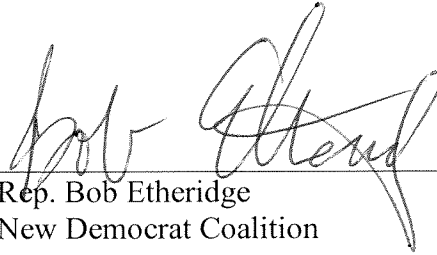 Bob Etherid
Rep. Bob Etheridge
New Democrat Coalition